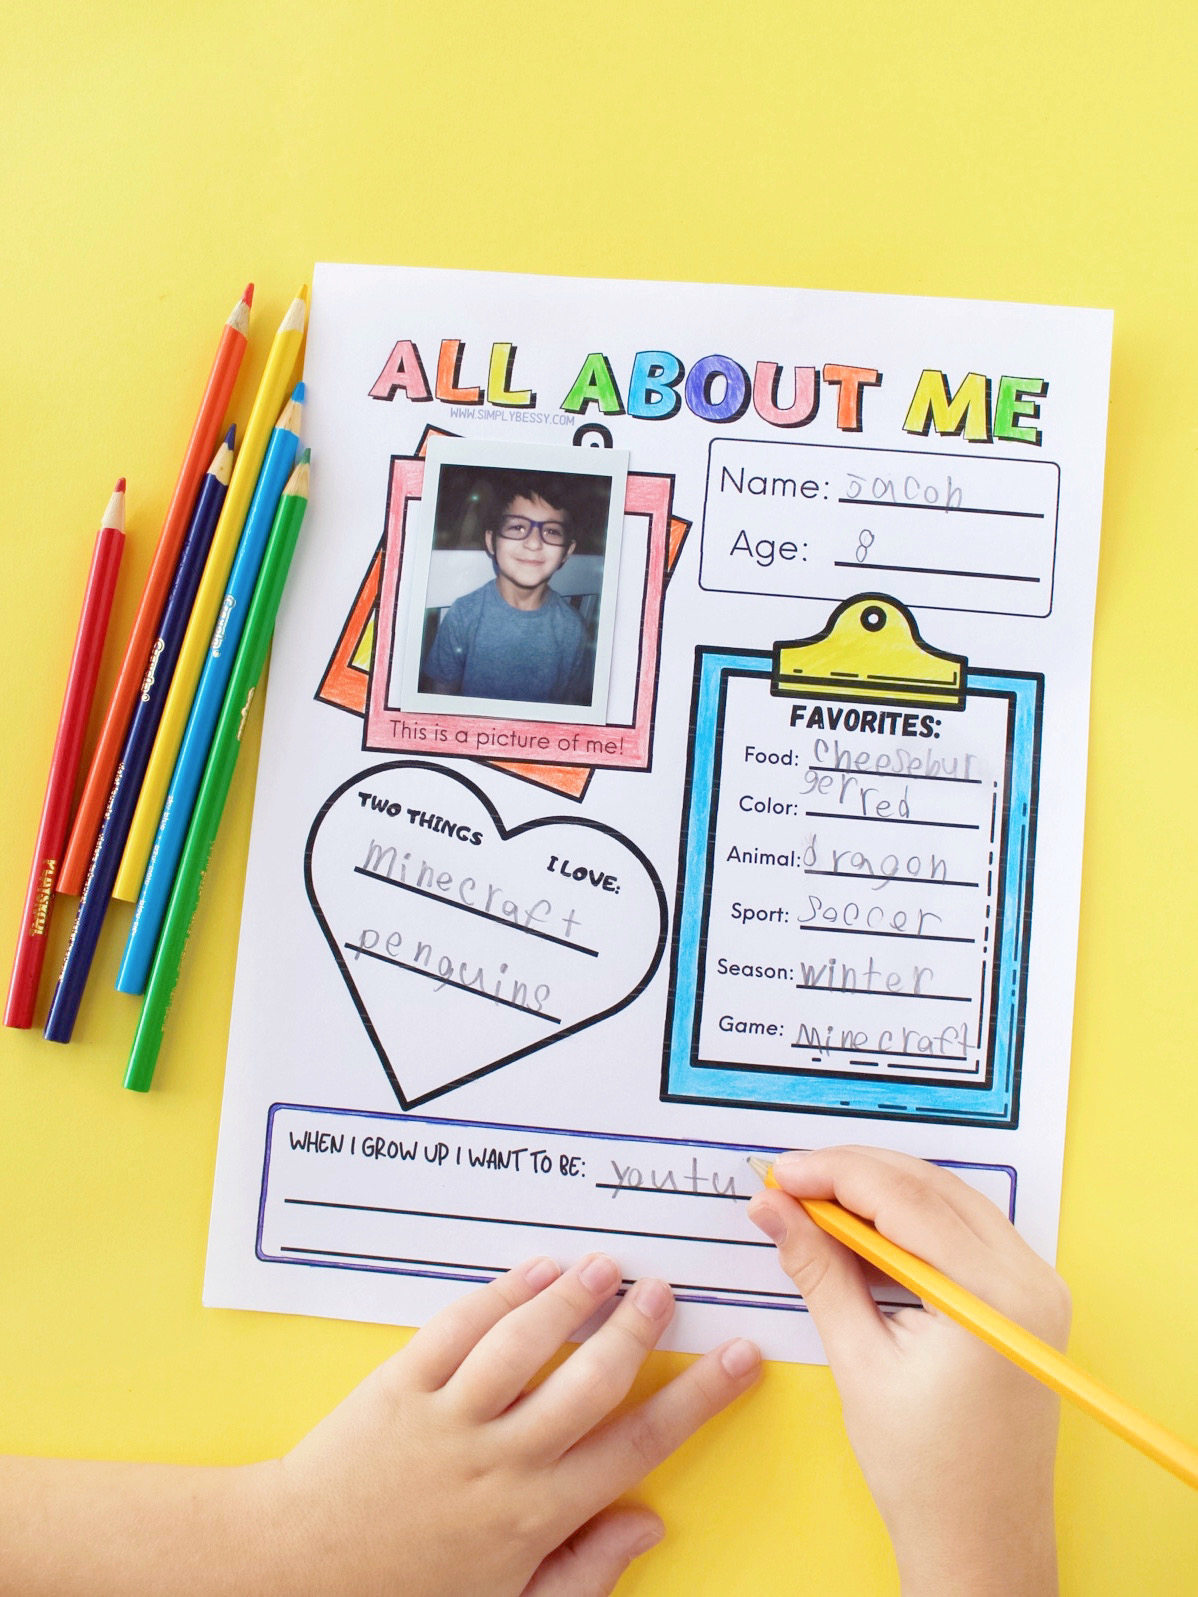 ALL ABOUT ME
WWW.SIMPLYBESSY.COM
Name: Jacob
Age: 8
This is a picture of me!
FAVORITES:
Food: cheesebur
ger
Color: red
Animal: dragon
Sport: Soccer
Season: winter
Game: Minecraft
TWO THINGS
I LOVE:
Minecraft
penguins
WHEN I GROW UP I WANT TO BE: youtu
Crayola
Crayola
PLAYSKOOL